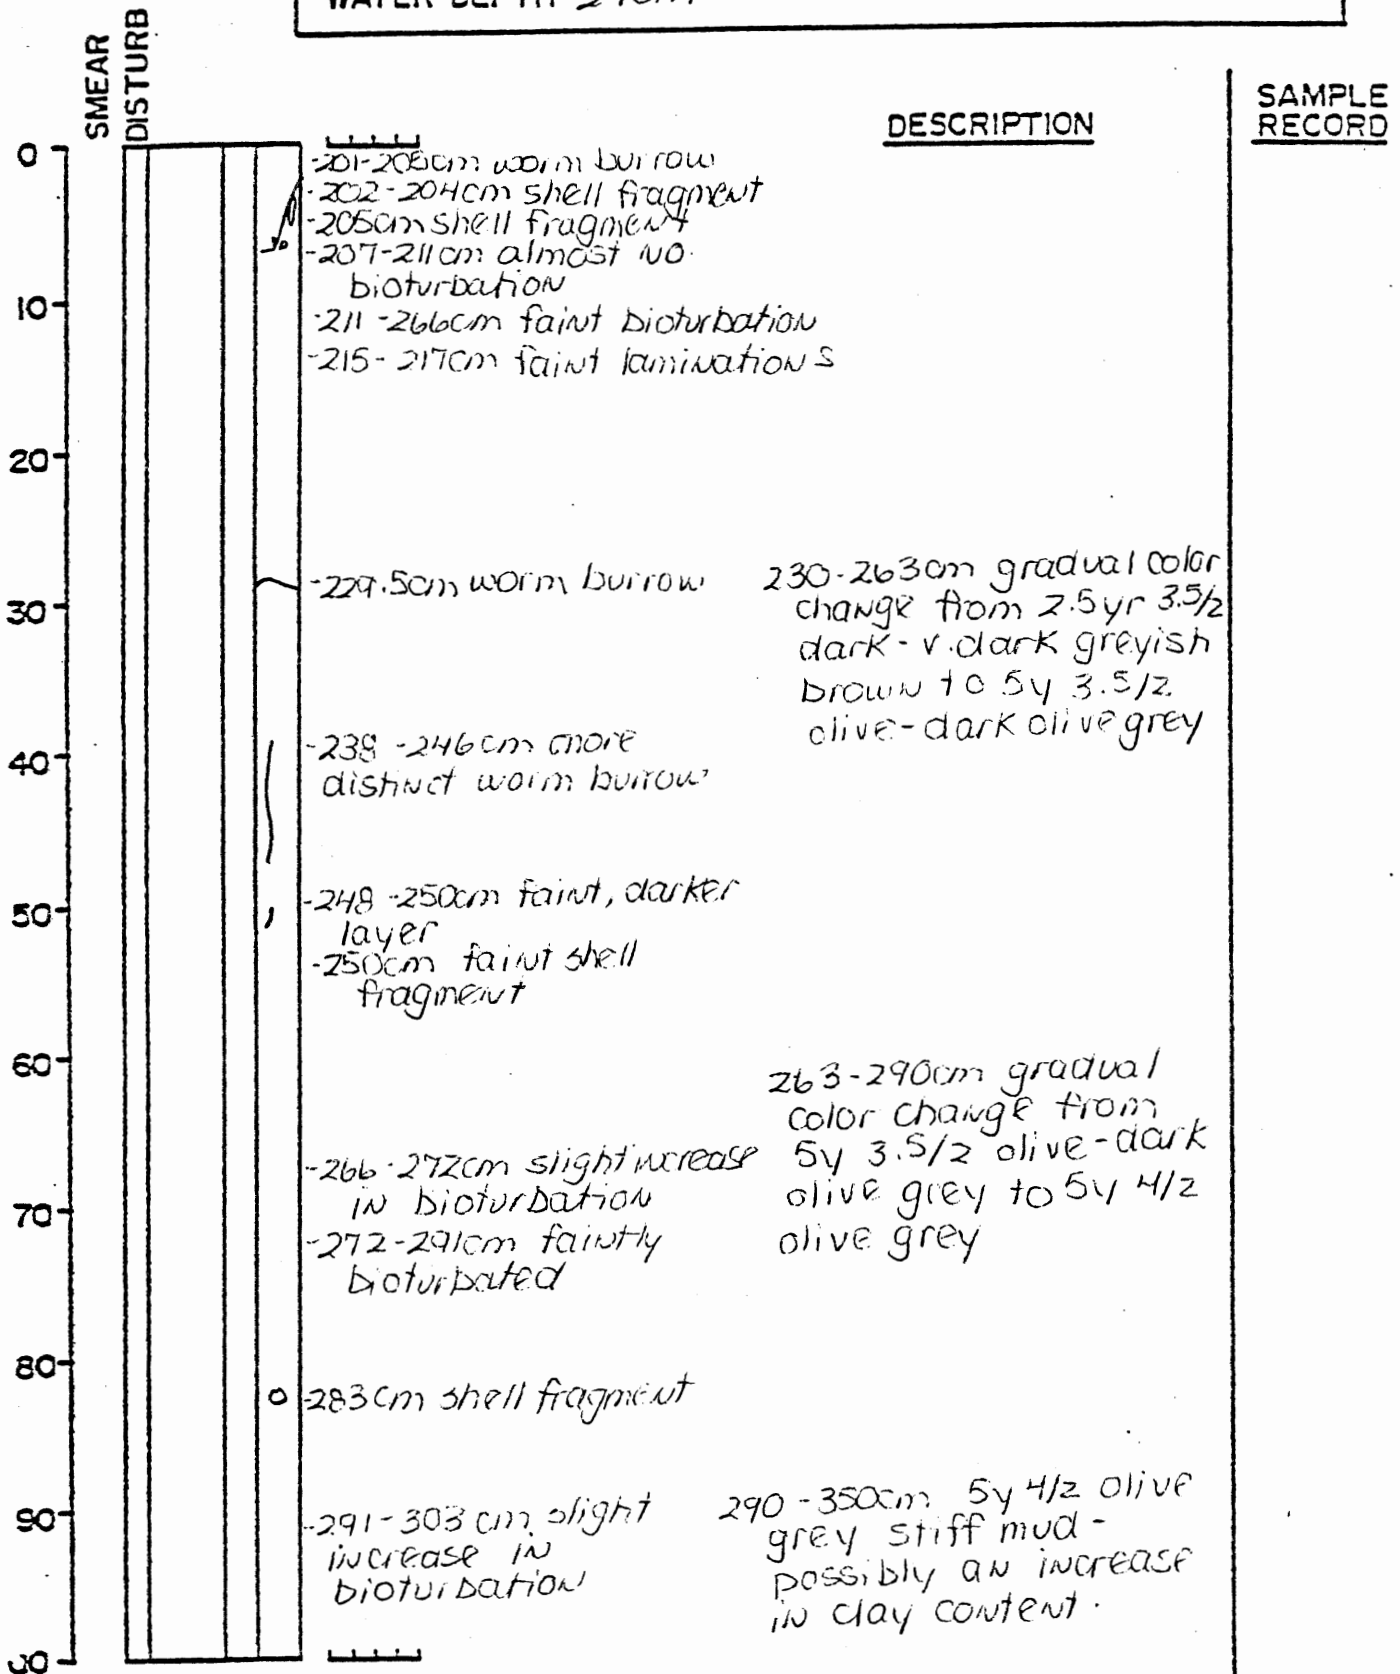 SMEAR
DISTURB
DESCRIPTION
SAMPLE
RECORD
0
10
20
30
40
50
60
70
80
90
-202-204cm shell fragment
-205cm shell fragment
-207-211cm almost no
bioturbation
-211-266cm faint bioturbation
-215-217cm faint laminations
-229.5cm worm burrow
-238-246cm more
distinct worm burrow
-248-250cm faint, darker
layer
-250cm faint shell
fragment
-266-272cm slight increase
in bioturbation
-272-291cm faintly
bioturbated
-283cm shell fragment
-291-303cm slight
increase in
bioturbation
230-263cm gradual color
change from 2.5yr 3.5/2
dark-v.dark greyish
brown to 5y 3.5/2
olive-dark olive grey
263-290cm gradual
color change from
5y 3.5/2 olive-dark
olive grey to 5y 4/2
olive grey
290-350cm 5y 4/2 olive
grey stiff mud -
possibly an increase
in clay content.